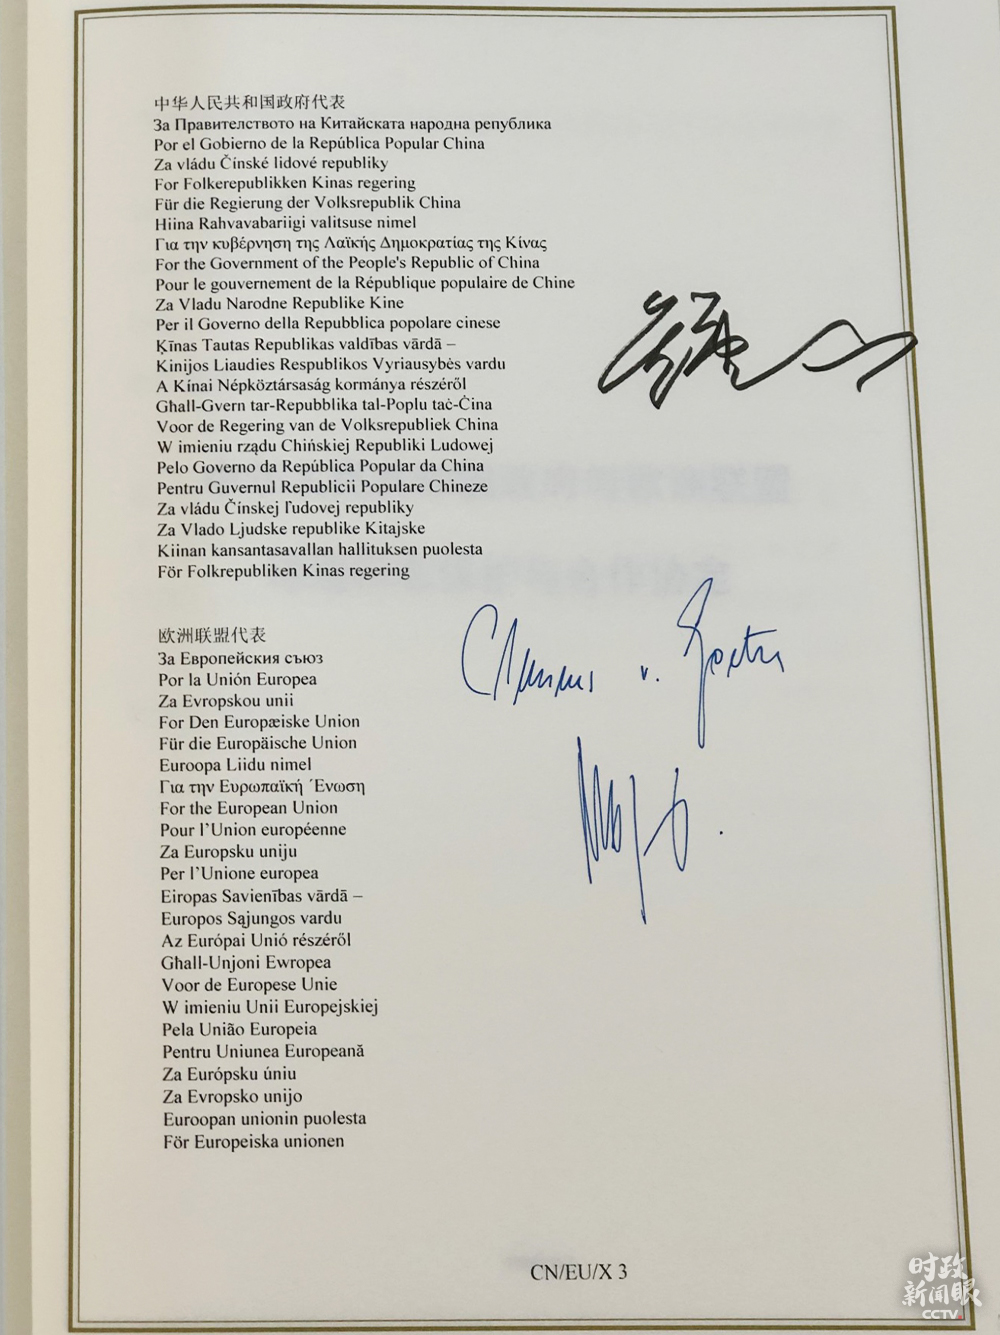 中华人民共和国政府代表
За Правителството на Китайската народна република
Por el Gobierno de la República Popular China
Za vládu Čínské lidové republiky
For Folkerepublikken Kinas regering
Für die Regierung der Volksrepublik China
Hiina Rahvavabariigi valitsuse nimel
Για την κυβέρνηση της Λαϊκής Δημοκρατίας της Κίνας
For the Government of the People's Republic of China
Pour le gouvernement de la République populaire de Chine
Za Vladu Narodne Republike Kine
Per il Governo della Repubblica popolare cinese
Ķīnas Tautas Republikas valdības vārdā –
Kinijos Liaudies Respublikos Vyriausybės vardu
A Kínai Népköztársaság kormánya részéről
Għall-Gvern tar-Repubblika tal-Poplu taċ-Ċina
Voor de Regering van de Volksrepubliek China
W imieniu rządu Chińskiej Republiki Ludowej
Pelo Governo da República Popular da China
Pentru Guvernul Republicii Populare Chineze
Za vládu Čínskej ľudovej republiky
Za Vlado Ljudske republike Kitajske
Kiinan kansantasavallan hallituksen puolesta
För Folkrepubliken Kinas regering
欧洲联盟代表
За Европейския съюз
Por la Unión Europea
Za Evropskou unii
For Den Europæiske Union
Für die Europäische Union
Euroopa Liidu nimel
Για την Ευρωπαϊκή Ένωση
For the European Union
Pour l'Union européenne
Za Europsku uniju
Per l'Unione europea
Eiropas Savienības vārdā –
Europos Sąjungos vardu
Az Európai Unió részéről
Għall-Unjoni Ewropea
Voor de Europese Unie
W imieniu Unii Europejskiej
Pela União Europeia
Pentru Uniunea Europeană
Za Európsku úniu
Za Evropsko unijo
Euroopan unionin puolesta
För Europeiska unionen
CN/EU/X 3
时政
新闻眼
CCTV